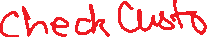 Check Custo